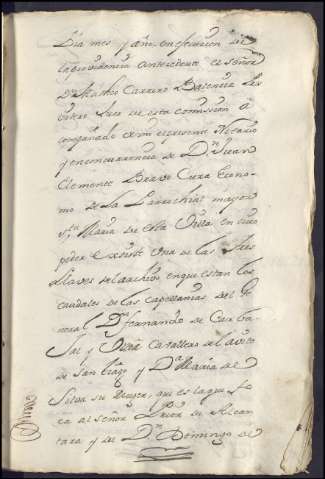 Dia mes y año en execucion de
la providencia antecedente el señor
Dn Matheo Carrero Balencia Pres
vitero Juez de esta comision a
compañado de mi el presente Notario
y en concurrencia de Dn Juan
Clemente Bravo Cura Econo
mo de la Parrochial mayor
Sta Maria de esta Villa en cuio
poder existe una de las tres
llaves del archivo en que estan los
caudales de las capellanias del Ge
neral Dn fernando de Carba
jal y Cavallero del avito
de San tiago y Da Maria de
Silva su Muger, que es la que to
ca al señor Prior de Alcan
tara y de Dn Domingo de